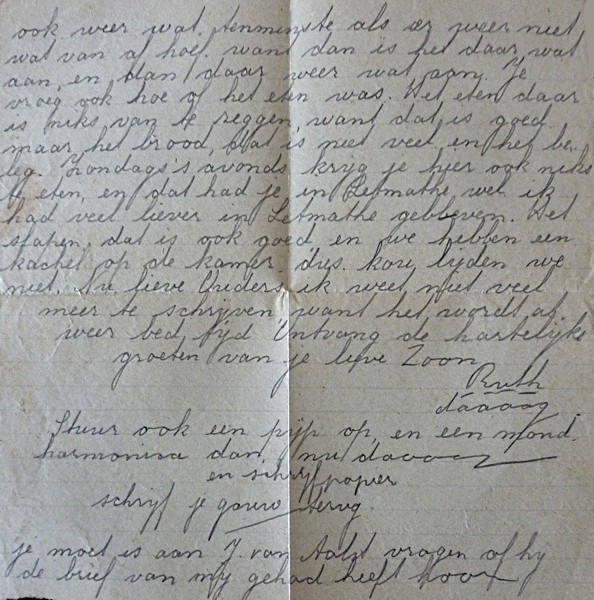 ook weer wat, tenminste als er weer niet
wat van af hoef. want dan is het daar wat
aan, en dan daar weer wat aan. Je
vroeg ook hoe of het eten was. Het eten daar
is niks van te zeggen, want dat is goed
maar het brood, dat is niet veel en het be-
leg. Zondags's avonds krijg je hier ook niks
te eten, en dat had je in Letmathe wel ik
had veel liever in Letmathe gebleven. Het
slapen, dat is ook goed, en we hebben een
kachel op de kamer, dus kou lijden we
niet. Nu lieve Ouders ik weet niet veel
meer te schrijven want het wordt al
weer bed tijd Ontvang de hartelijke
groeten van je lieve Zoon
dáááág.
Stuur ook een pijp op, en een mond.
harmonica dan, nu daoooz
en schrijfpapier
schrijf je gouw terug.
je moet is aan J. van Aalst vragen of hij
de brief van mij gehad heeft hoor